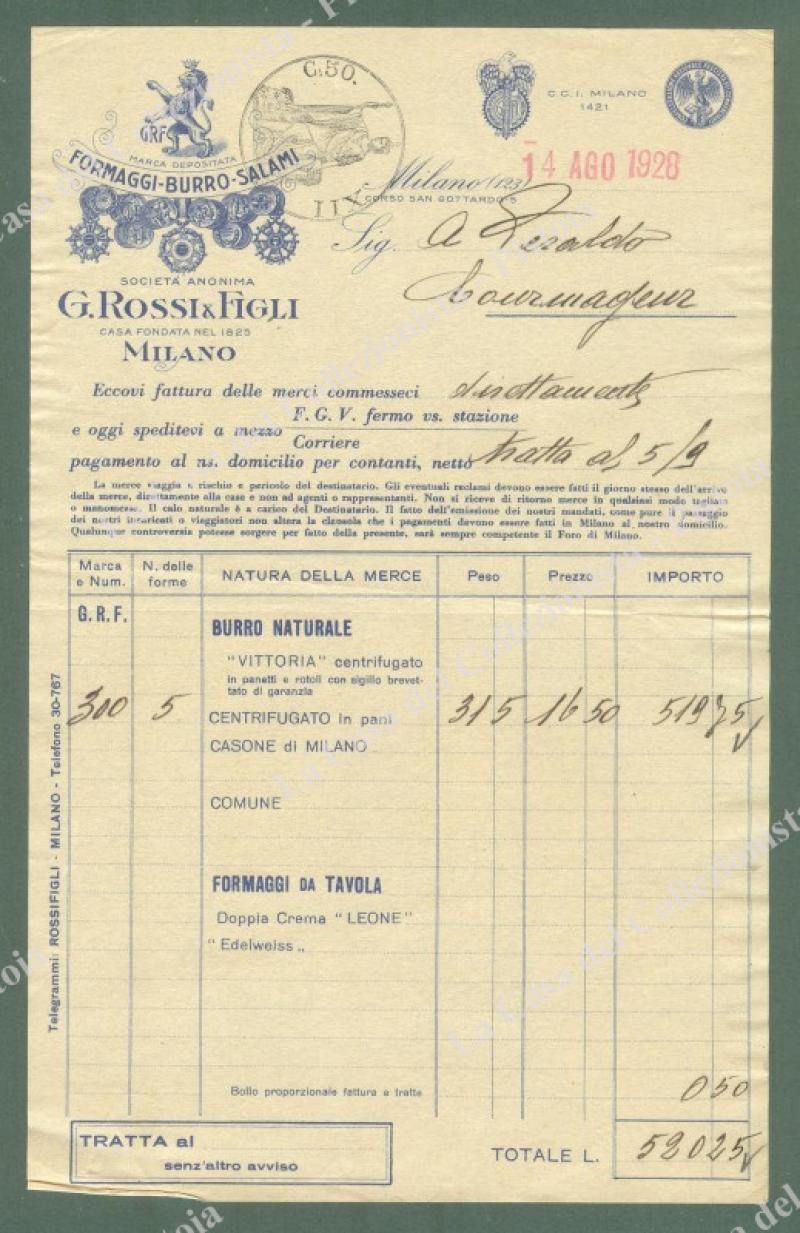 C. 50.
XII
GRF
MARCA DEPOSITATA
FORMAGGI-BURRO-SALAMI
C.C.I. MILANO
1421
14 AGO 1928
Milano (123)
CORSO SAN GOTTARDO 5
Sig. A Peraldo
Courmayeur
SOCIETÀ ANONIMA
G. ROSSI & FIGLI
CASA FONDATA NEL 1825
MILANO
Eccovi fattura delle merci commesseci direttamente
e oggi speditevi a mezzo F. G. V. fermo vs. stazione
Corriere
pagamento al ns. domicilio per contanti, netto tratta al 5/9
La merce viaggia a rischio e pericolo del destinatario. Gli eventuali reclami devono essere fatti il giorno stesso dell'arrivo
della merce, direttamente alla casa e non ad agenti o rappresentanti. Non si riceve di ritorno merce in qualsiasi modo tagliata
o manomessa. Il calo naturale è a carico del Destinatario. Il fatto dell'emissione dei nostri mandati, come pure il passaggio
dei nostri incaricati o viaggiatori non altera la clausola che i pagamenti devono essere fatti in Milano al nostro domicilio.
Qualunque controversia potesse sorgere per fatto della presente, sarà sempre competente il Foro di Milano.
Marca e Num. N. delle forme NATURA DELLA MERCE Peso Prezzo IMPORTO
G.R.F.
BURRO NATURALE
"VITTORIA" centrifugato
in panetti e rotoli con sigillo brevet-
tato di garanzia
300 5 CENTRIFUGATO in pani 31 5 16 50 519 75
CASONE di MILANO
COMUNE
FORMAGGI DA TAVOLA
Doppia Crema "LEONE"
"Edelweiss"
Bollo proporzionale fattura e tratte 0 50
TRATTA al
senz'altro avviso
TOTALE L. 520 25
Telegrammi: ROSSIFIGLI - MILANO - Telefono 30-767
La Casa del Collezionista - Pistoia